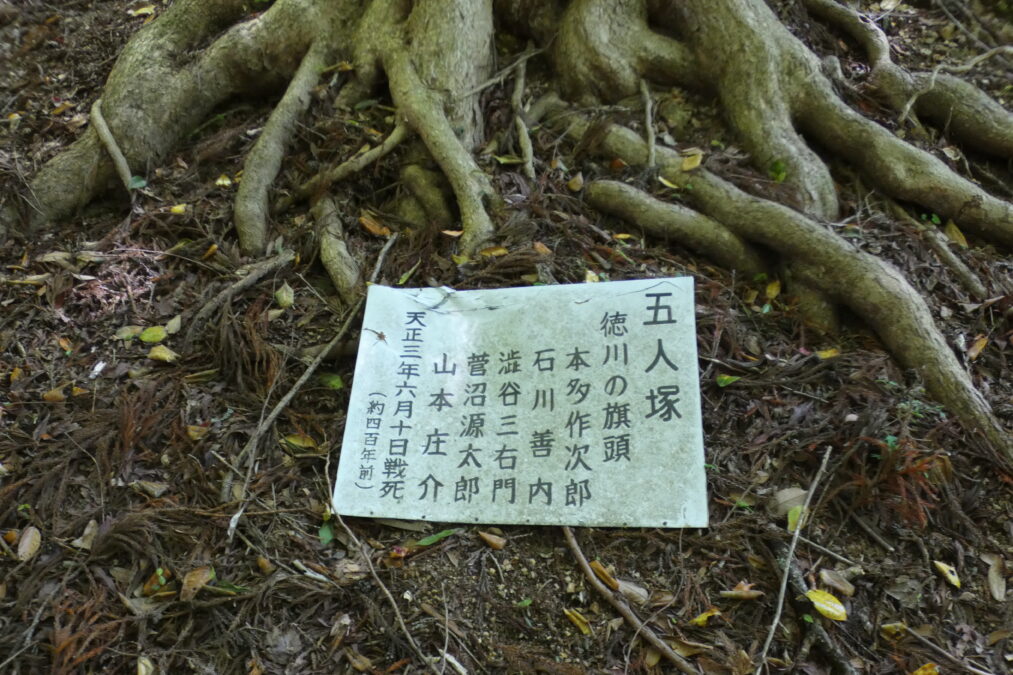 五人塚
徳川の旗頭
本多作次郎
石川善内
澁谷三右門
菅沼源太郎
山本庄介
天正三年六月十日戦死
（約四百年前）